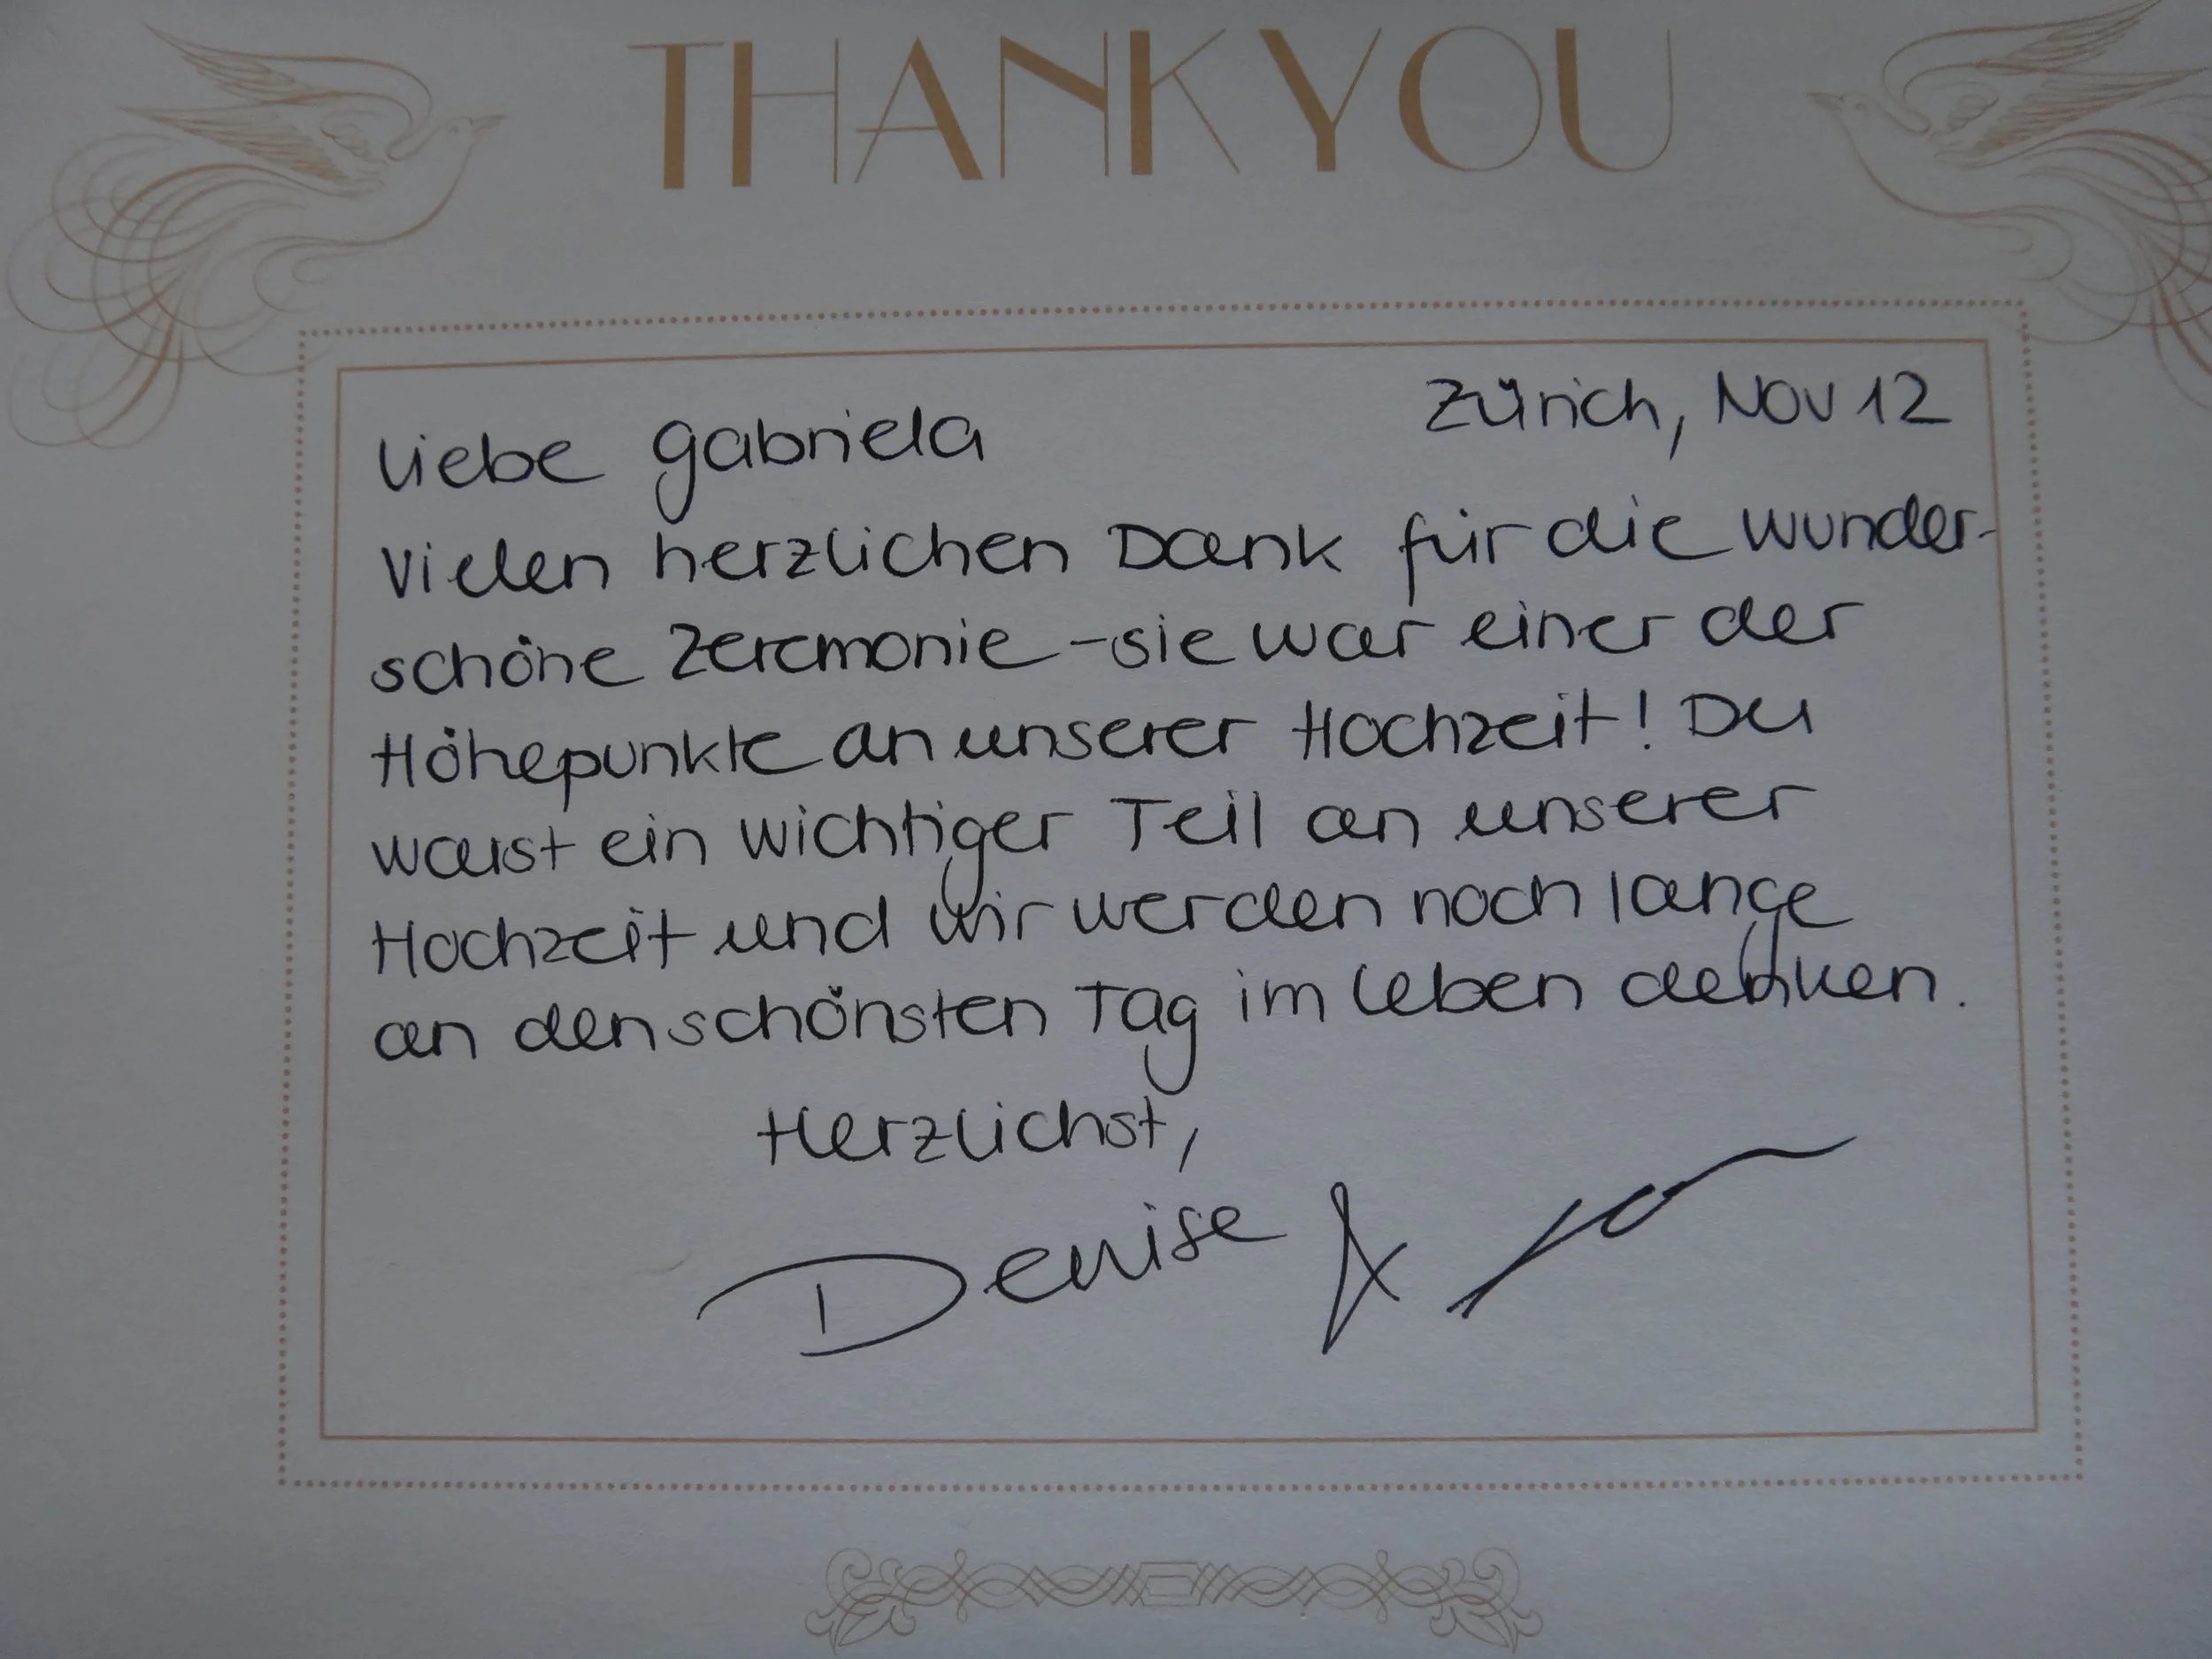 THANK YOU
Zürich, Nov 12
Liebe Gabriela
Vielen herzlichen Dank für die wunder-
schöne Zeremonie - sie war einer der
Höhepunkte an unserer Hochzeit! Du
warst ein wichtiger Teil an unserer
Hochzeit und wir werden noch lange
an den schönsten Tag im Leben denken.
Herzlichst,
Denise &